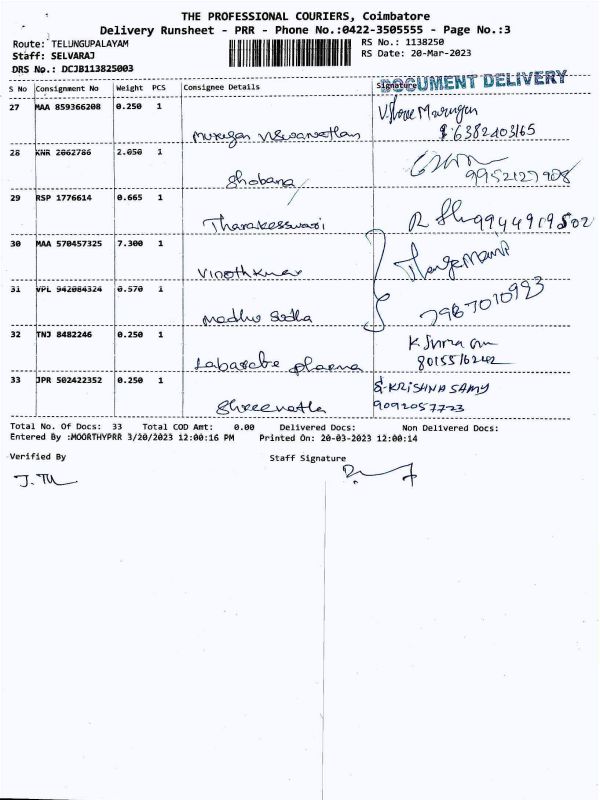 THE PROFESSIONAL COURIERS, Coimbatore
Delivery Runsheet - PRR - Phone No.:0422-3505555 - Page No.:3
Route: TELUNGUPALAYAM RS No.: 1138250
Staff: SELVARAJ RS Date: 20-Mar-2023
DRS No.: DCJB113825003
DOCUMENT DELIVERY
S No Consignment No Weight PCS Consignee Details Signature
27 MAA 859366208 0.250 1
Murugan 6382403165
28 KNR 2062786 2.050 1
Shobana 9952127908
29 RSP 1776614 0.665 1
Tharakesswari 9944919502
30 MAA 570457325 7.300 1
Vinothkumar
31 VPL 942084324 0.570 1
Madhu Sudha 7987010983
32 TNJ 8482246 0.250 1
K.
pharma
33 JPR 502422352 0.250 1 KRISHNASAMY
9092057723
Total No. Of Docs: 33 Total COD Amt: 0.00 Delivered Docs: Non Delivered Docs:
Entered By :MOORTHYPRR 3/20/2023 12:00:16 PM Printed On: 20-03-2023 12:00:14
Verified By Staff Signature